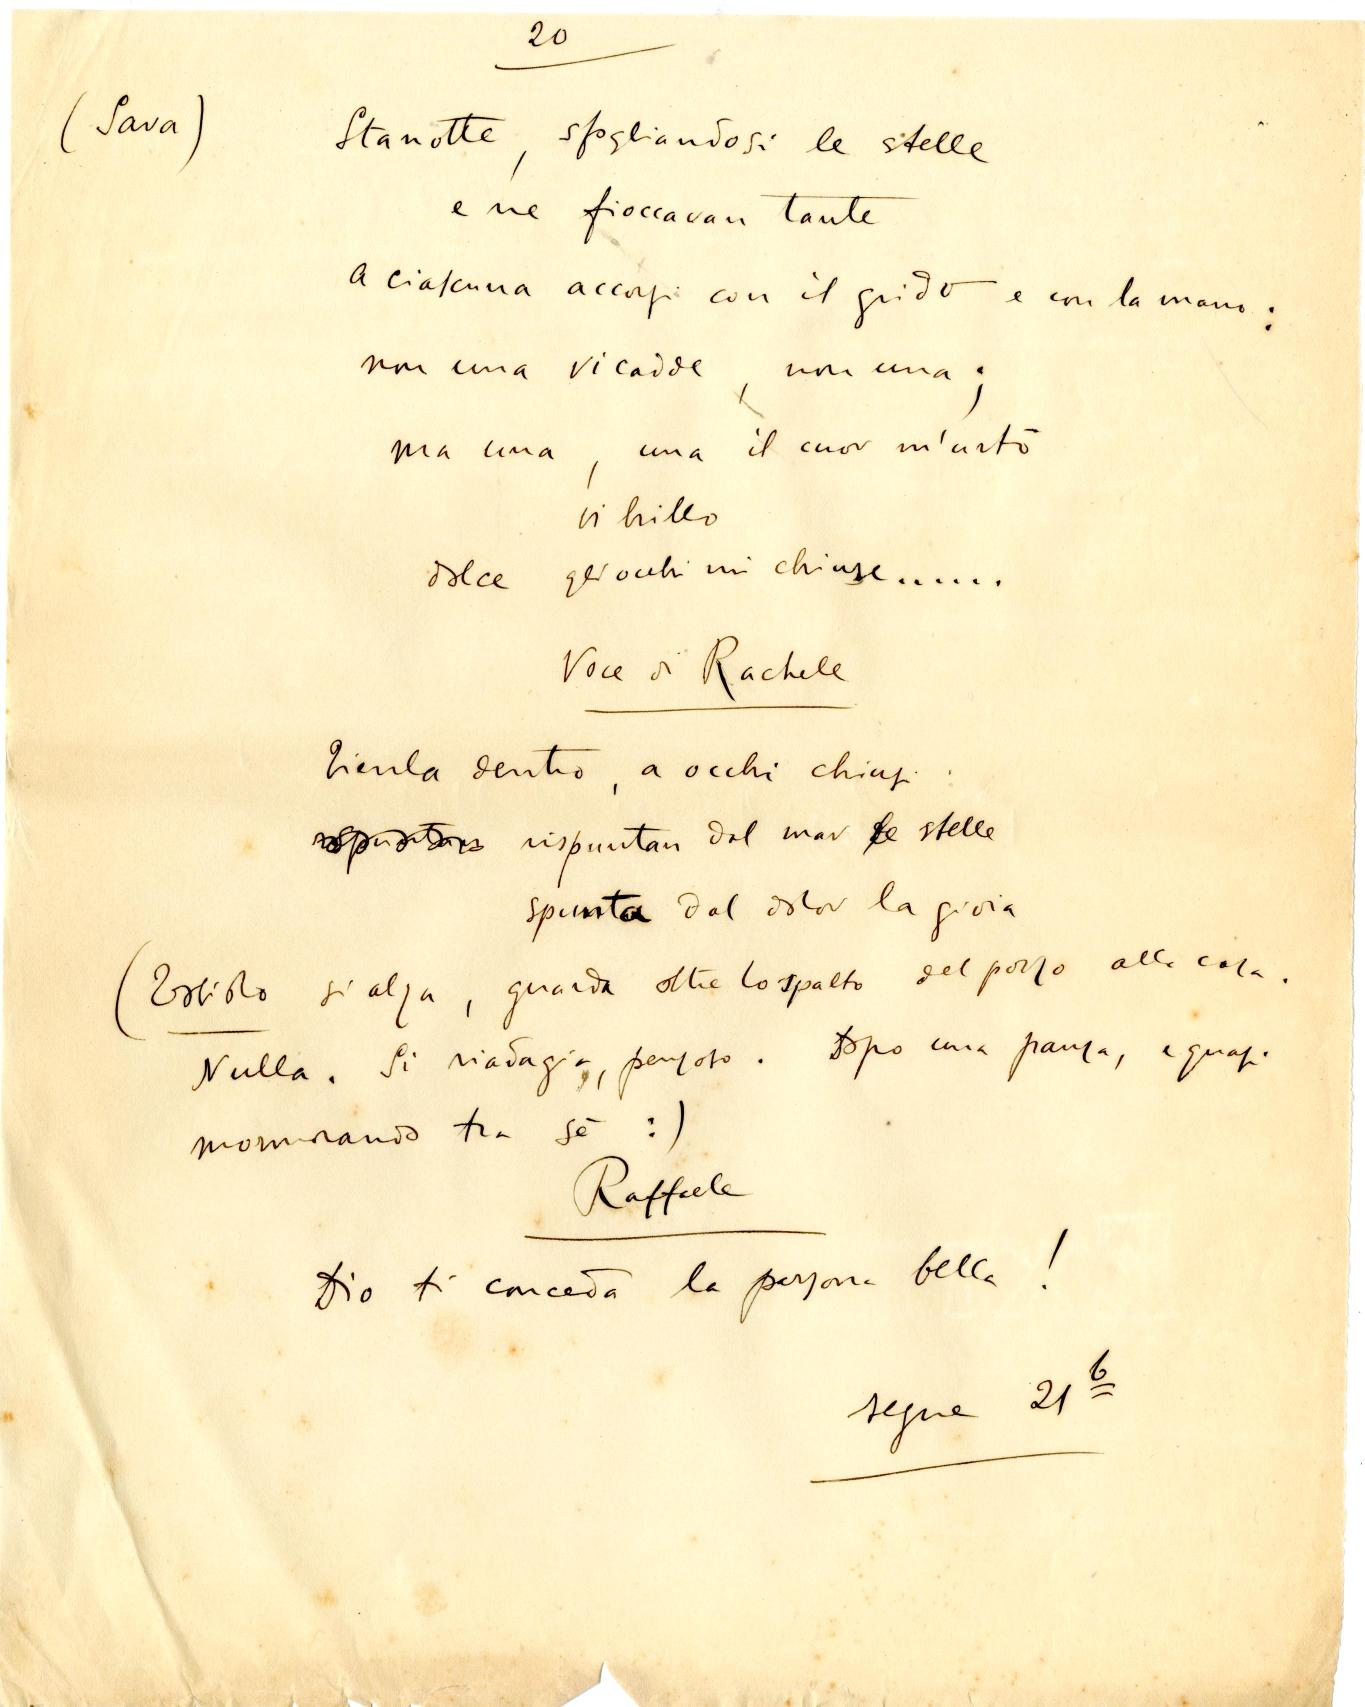 20
(Sava) Stanotte, sfogliandosi le stelle
e ne fioccavan tante
a ciascuna accorsi con il grido e con la mano:
non una ricadde, non una;
ma una, una il cuor m'urtò
vi brillò
dolce gli occhi mi chiuse.....
Voce di Rachele
Tienla dentro, a occhi chiusi:
rispuntan dal mar le stelle
spunta dal dolor la gioia
( si alza, guarda oltre lo spalto del pozzo alla casa.
Nulla. Si riadagia, pensoso. Dopo una pausa, e quasi
mormorando tra sè:)
Raffaele
Dio ti conceda la persona bella!
segue 21 b